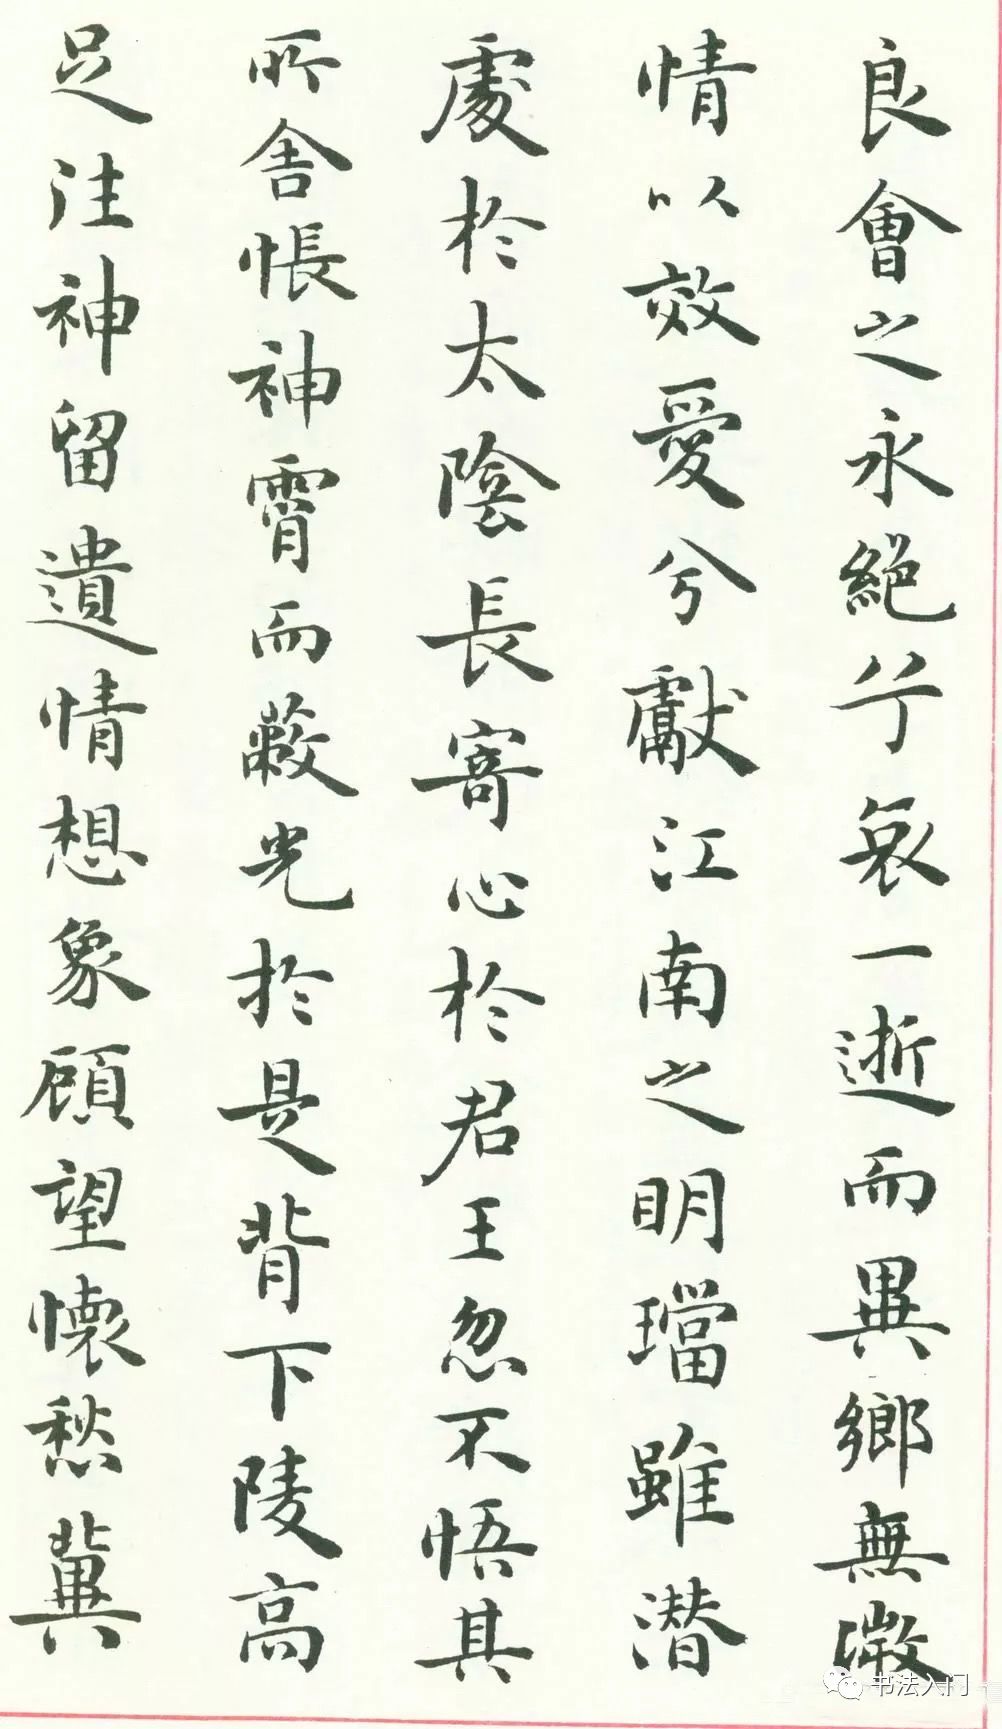 良會之永絕兮哀一逝而異鄉無微
情以效愛兮獻江南之明璫雖潛
處於太陰長寄心於君王忽不悟其
所舍悵神霄而蔽光於是背下陵高
足往神留遺情想象顧望懷愁冀
书法入门